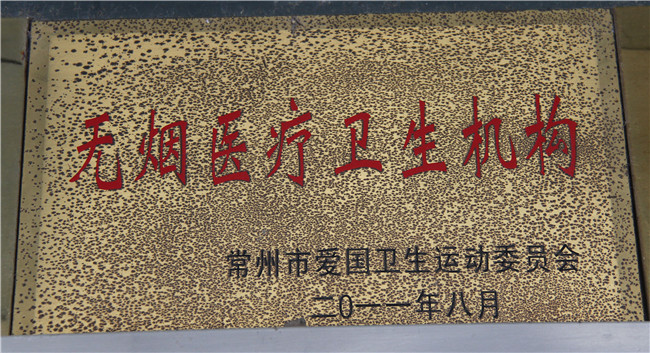 无烟医疗卫生机构
常州市爱国卫生运动委员会
二0一一年八月